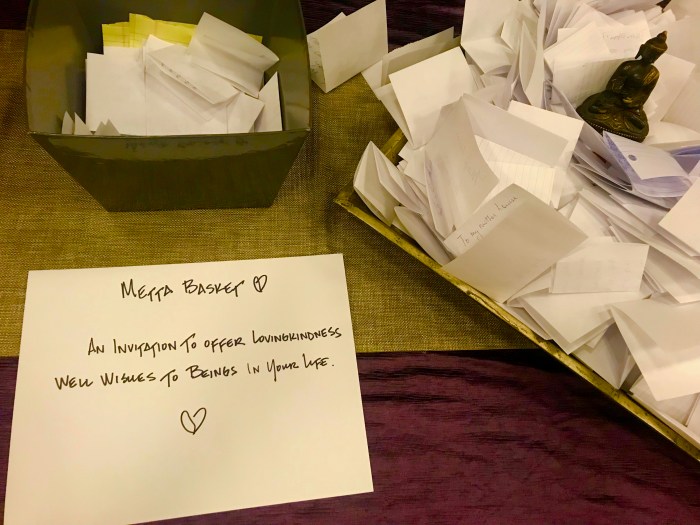 Metta Basket ♡
An Invitation to offer Lovingkindness
Well Wishes to Beings in Your Life.
♡
To my mother